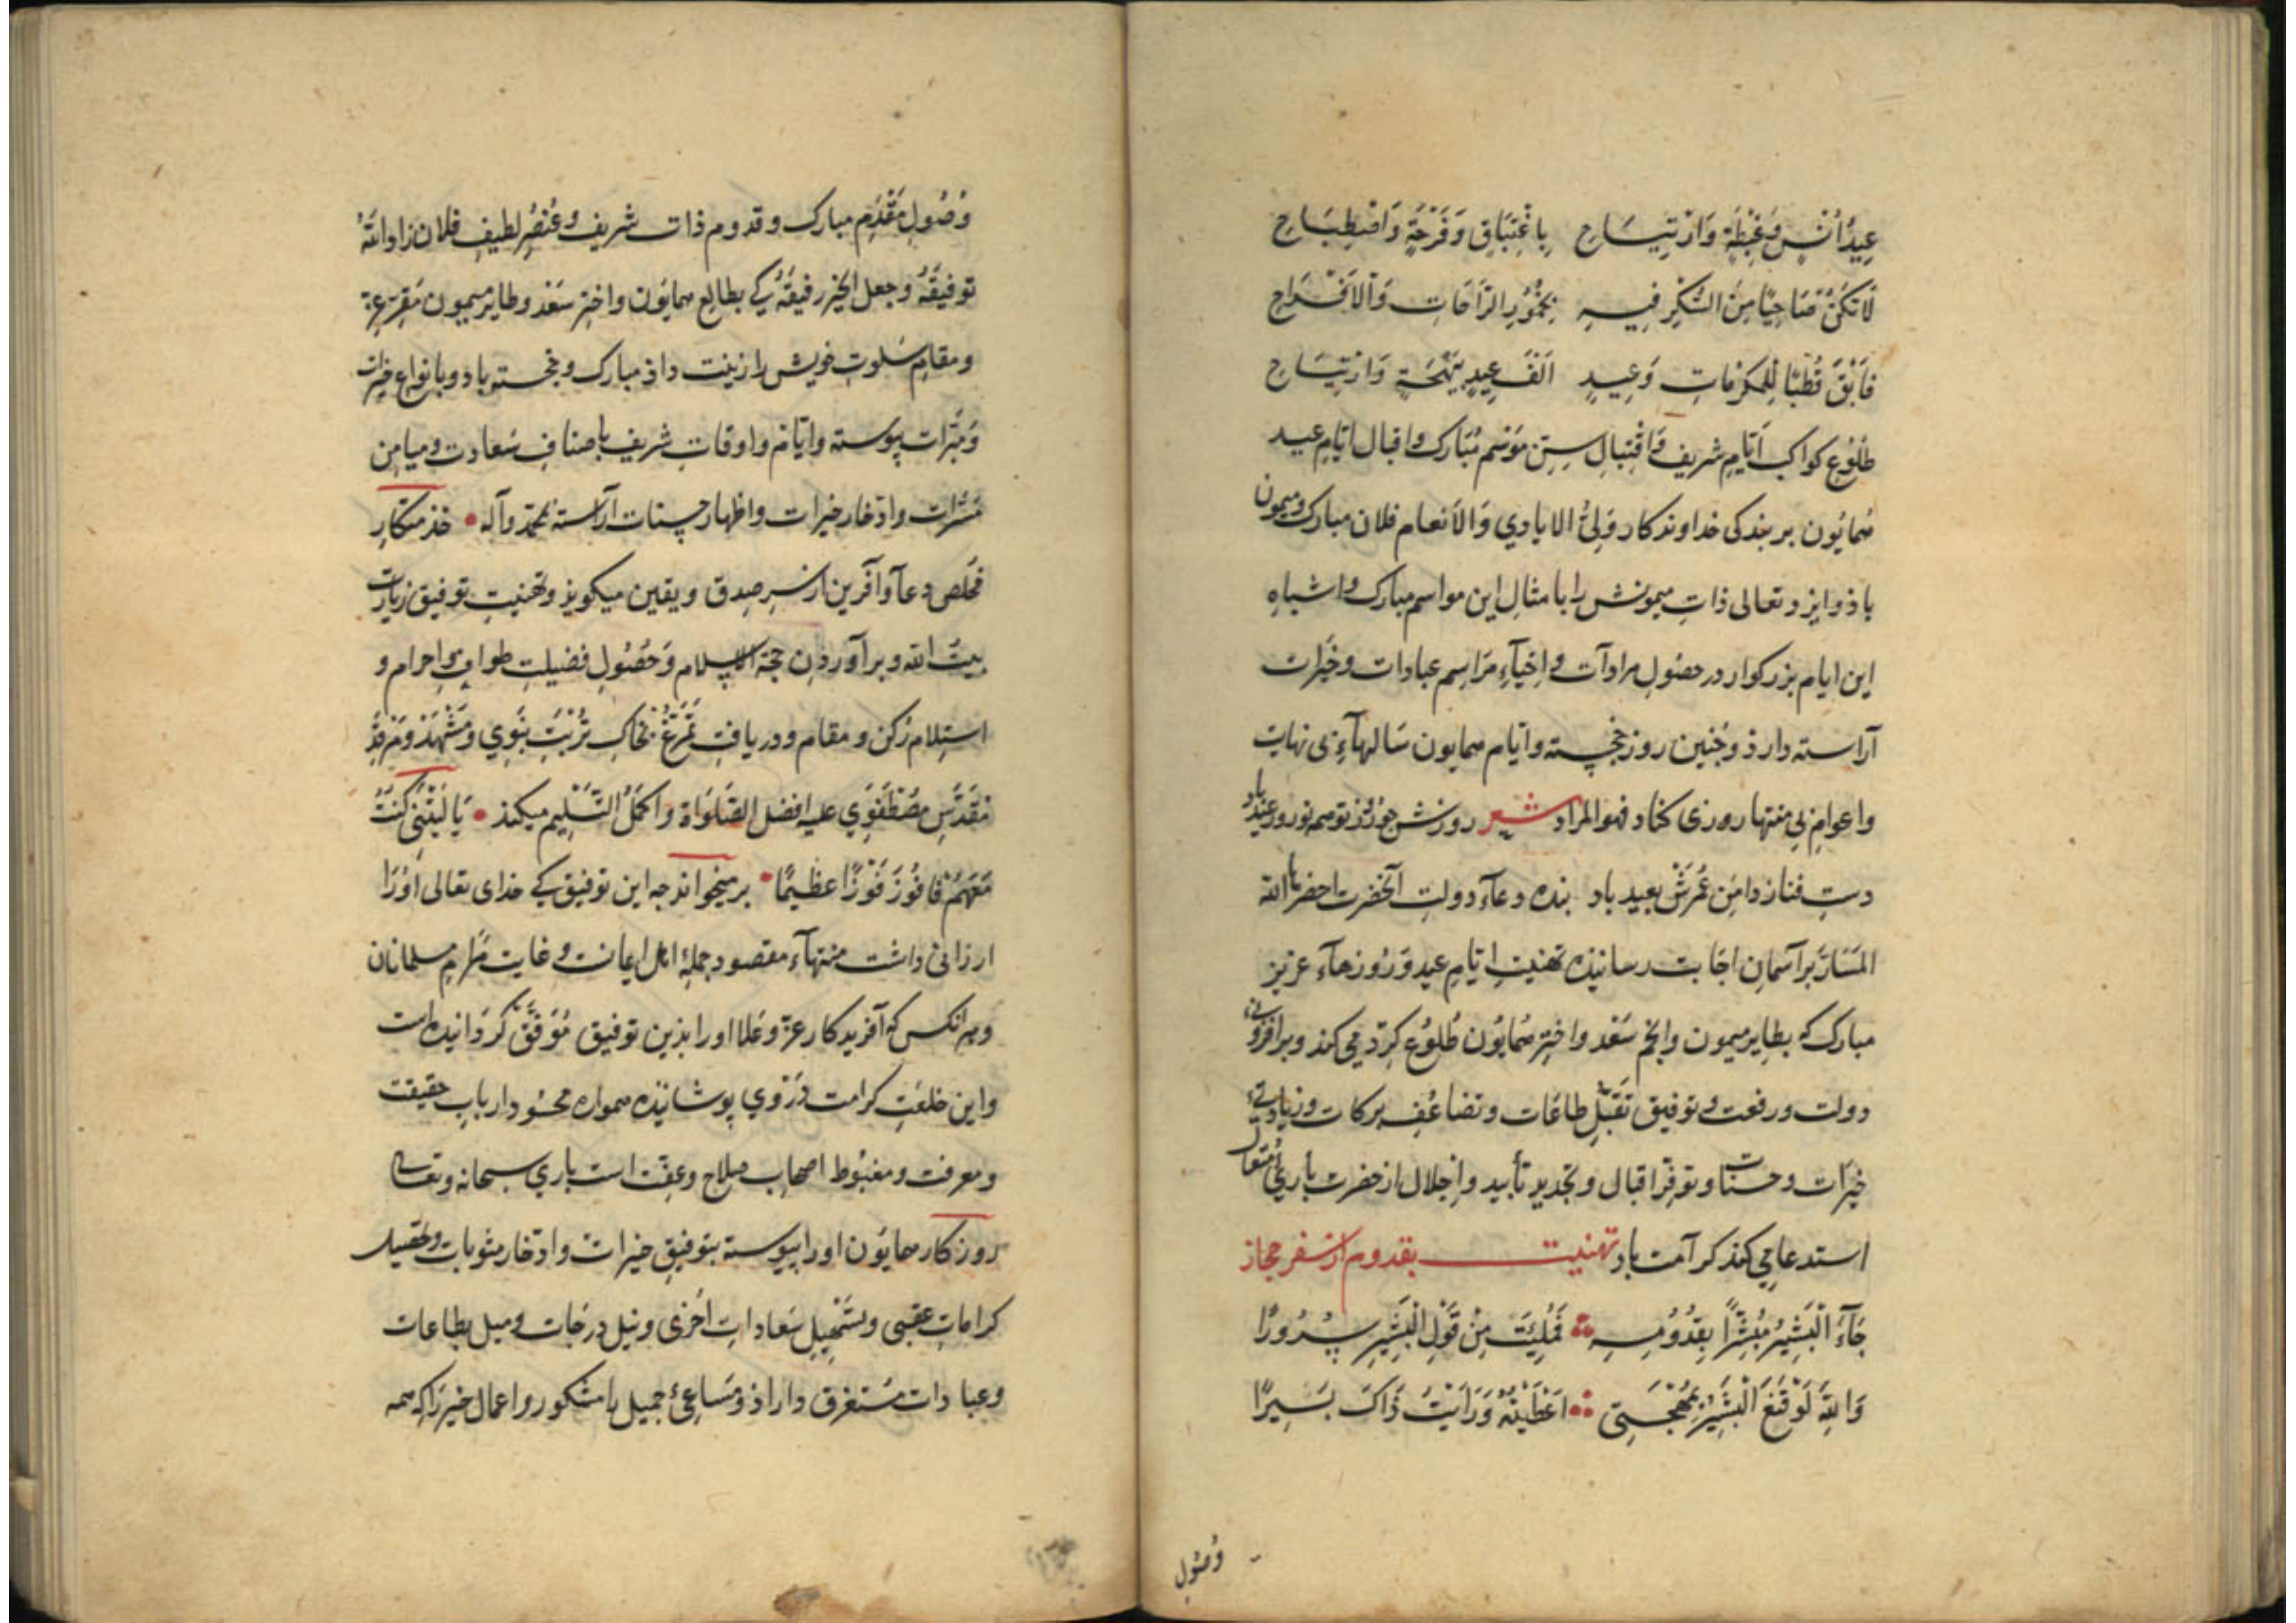 عِيدُ اُنْسٍ وَغِبْطَةٍ وَارْتِيَاحِ بِاغْتِبَاقٍ وَفَرْحَةٍ وَاصْطِبَاحِ
لَا تَكُنْ صَاحِيًا مِنَ السُّكْرِ فِيهِ بِخُمُورِ الرَّاحَاتِ وَالْاَفْرَاحِ
فَابْقَ قُطْبًا لِلْمَكْرُمَاتِ وَعِيدٍ اَلْفَ عِيدٍ بِبَهْجَةٍ وَارْتِيَاحِ
طُلُوعِ کواکب اَیّامِ شریف وَاقْتِبالِ سنن مَوْسِم مُبارَک و اقبال ایّامِ عید
همایُون بر بندکی خداوندکار وَلِیُّ الایادي وَالاَنعام فلان مبارک ومیمون
باذ وایزد تعالی ذاتِ میمونش را با مثالِ این مواسم مبارک و اشباهِ
این ایام بزرکوار در حصُولِ مرادآت و اِحْیآءِ مَرَاسِم عبادات و خَیرات
آراسته دارذ وچُنین روز خجسته وایّام همایون سَالهآءِ بی نهایت
واعوامِ بی منتها روزی کناد فهو المراد شعر روزش چو روز نو همه نوروز و عید باد
دستِ فنا ز دامن عُمرش بعید باد بنده دعآء دولتِ آنحضرت احضر بها الله
المَسَارّ بر آسمان اجَابت رسانیذه تهنیتِ ایّامِ عید وَ رُوزهآءِ عزیز
مبارک که بطایر میمون وانجم سَعْد واختر همایُون طُلوُع کرد می کند وبر افزونی
دولت و رفعت و توفیق تَقَبُّلِ طاعَات و تضاعُف برکات و زیادتی
خیرَات وحسنات و توفّر اقبال و تجدید تأبید و اِجلال از حضرت باریءِ مُتعال
استدعا می کند کرامت باد تهنیت بقدوم از سفر حجاز
جَآءَ الْبَشِیرُ مُبَشِّرًا بِقُدُومِهِ فَمُلِیَتْ مِنْ قَوْلِ الْبَشِیرِ سُرُورًا
وَاللهِ لَوْ قَنَعَ الْبَشِیرُ بِمُهْجَتِی اَعْطَیْتُهُ وَرَاَیْتُ ذَاکَ یَسِیرًا
وُصُولِ
وُصُولِ مَقْدَمِ مبارک و قدومِ ذات شریف وعُنصُرِ لطیفِ فلان زاد الله
توفیقَهُ وجعل الخیر رفیقَهُ کی بطالعِ همایُون و اختر سَعْد وطایر میمون مَقرِ عزّ
ومقامِ سَلوتِ خویش را زینت داذ مبارک و خجسته باد وبانواعِ خیرات
وَمَبَرّات پیوسته و ایّام واوقاتِ شریف باصنافِ سَعادت و میامِن
مَسَرّات وادّخار خیرات و اظهار حسنات آراسته بمحمّد وآله خذمتکارِ
مُخلص دعا و آفرین از سرِ صدق و یقین میکویذ وتهنیتِ توفیق زیارت
بیتُ الله وبرآوردن حجّة الاسلام وَحصُولِ فضیلتِ طواف و احرام و
استلام رُکن و مقام و دریافتِ تَمَرُّغ بخاکِ تُرْبَتِ نَبَوِي وَمَشْهَد وَمَرْقَدِ
مُقَدَّسِ مصْطَفَوِي علیه افضل الصَّلَوَاة واکمَلُ التّسْلِیم میکند یَا لَیْتَنِي کُنْتُ
مَعَهُمْ فَاَفُوزَ فَوْزًا عظیمًا برمیخواند چه این توفیق کے خدای تعالی اُورَا
ارزانی داشت منتهآء مقصود جملهٔ اهل ایمانست و غایت مَرام مسلمانان
وهر انکس که آفریدکار عزّ وعَلا او را بذین توفیق مُوَفَّق کَرْدانیده است
واین خلعَتِ کرامت دَرْوي پوشانیذه همواره محسُود ارباب حقیقت
ومعرفت و مغبُوط اصحاب صلاح وعفّت است باري سبحانه و تعالی
روزکار همایُون او را پیوسته بتوفیقِ خیرات وادّخار مثوبات و تحصیل
کرامات عقبی و تسْجیلِ سَعاداتِ اُخْری و نیل درجات ومیل بطاعات
وعبادات مُستغرق داراذ و مَسَاعیٔ جمیل را مشکور و اعمال خیر را که همه